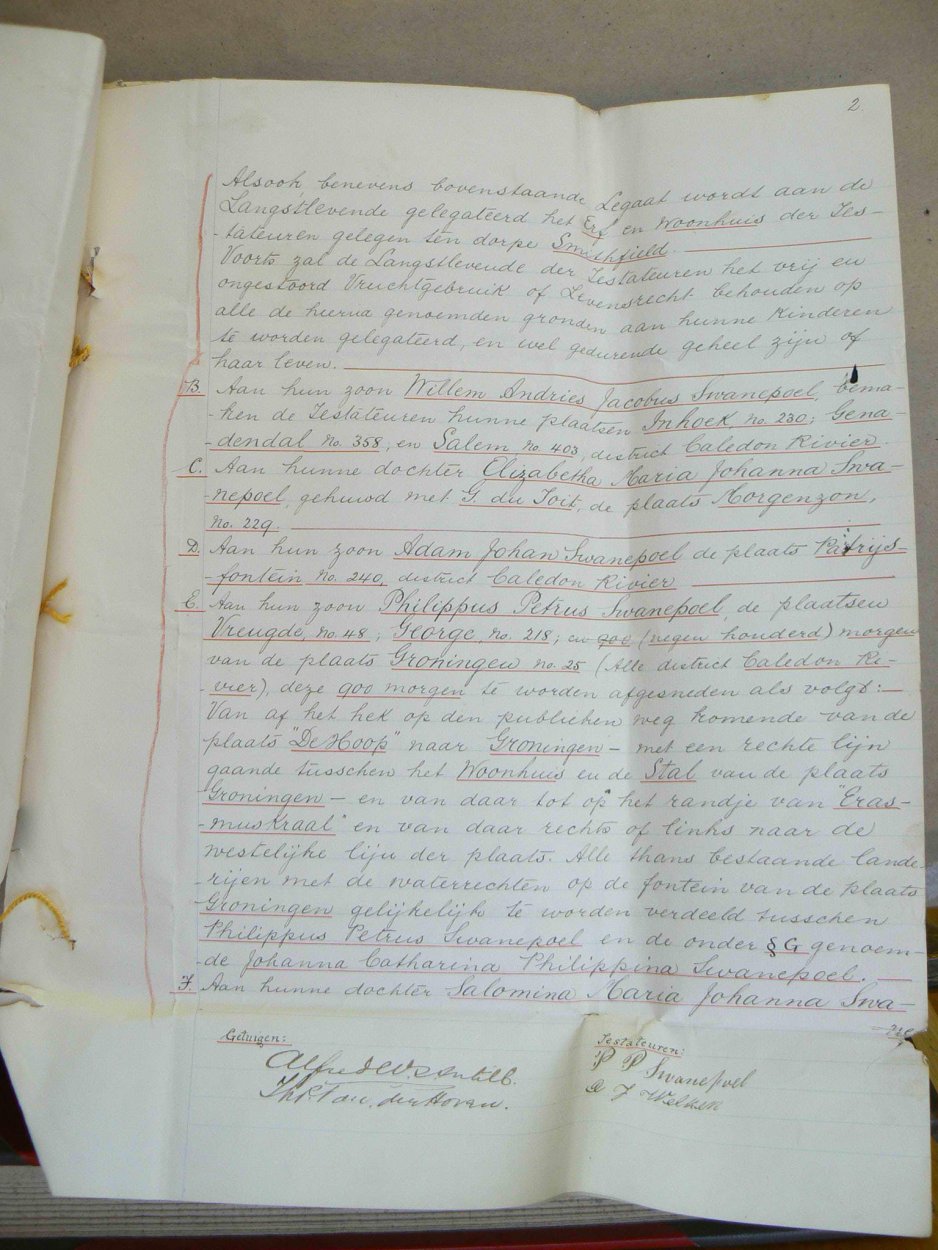 2
Alsook, benevens bovenstaande Legaat wordt aan de
Langstlevende gelegateerd het Erf en Woonhuis der Tes-
-tateuren gelegen ten dorpe Smithfield.
Voorts zal de Langstlevende der Testateuren het vrij en
ongestoord Vruchtgebruik of Levensrecht behouden op
alle de hierna genoemden gronden aan hunne Kinderen
te worden gelegateerd, en wel gedurende geheel zijn of
haar leven.
B. Aan hun zoon Willem Andries Jacobus Swanepoel, bema-
-ken de Testateuren hunne plaatsen Inhoek, No. 230; Gena-
-dendal No. 358, en Salem No. 403, district Caledon Rivier.
C. Aan hunne dochter Elizabetha Maria Johanna Swa-
-nepoel, gehuwd met G. du Toit, de plaats Morgenzon,
No. 229.
D. Aan hun zoon Adam Johan Swanepoel de plaats Patrijs-
-fontein, No. 240, district Caledon Rivier
E. Aan hun zoon Philippus Petrus Swanepoel, de plaatsen
Vreugde, No. 48; George, No. 218; en 900 (negen honderd) morgen
van de plaats Groningen No. 25 (Alle district Caledon Ri-
-vier), deze 900 morgen te worden afgesneden als volgt:—
Van af het hek op den publieken weg komende van de
plaats "De Hoop" naar Groningen — met een rechte lijn
gaande tusschen het Woonhuis en de Stal van de plaats
Groningen — en van daar tot op het randje van "Eras-
-muskraal" en van daar rechts of links naar de
westelijke lijn der plaats. Alle thans bestaande lande-
-rijen met de waterrechten op de fontein van de plaats
Groningen gelijkelijk te worden verdeeld tusschen
Philippus Petrus Swanepoel en de onder § G genoem-
-de Johanna Catharina Philippina Swanepoel.
F. Aan hunne dochter Salomina Maria Johanna Swa-
Getuigen:
Testateuren:
P P Swanepoel
der Hoven.